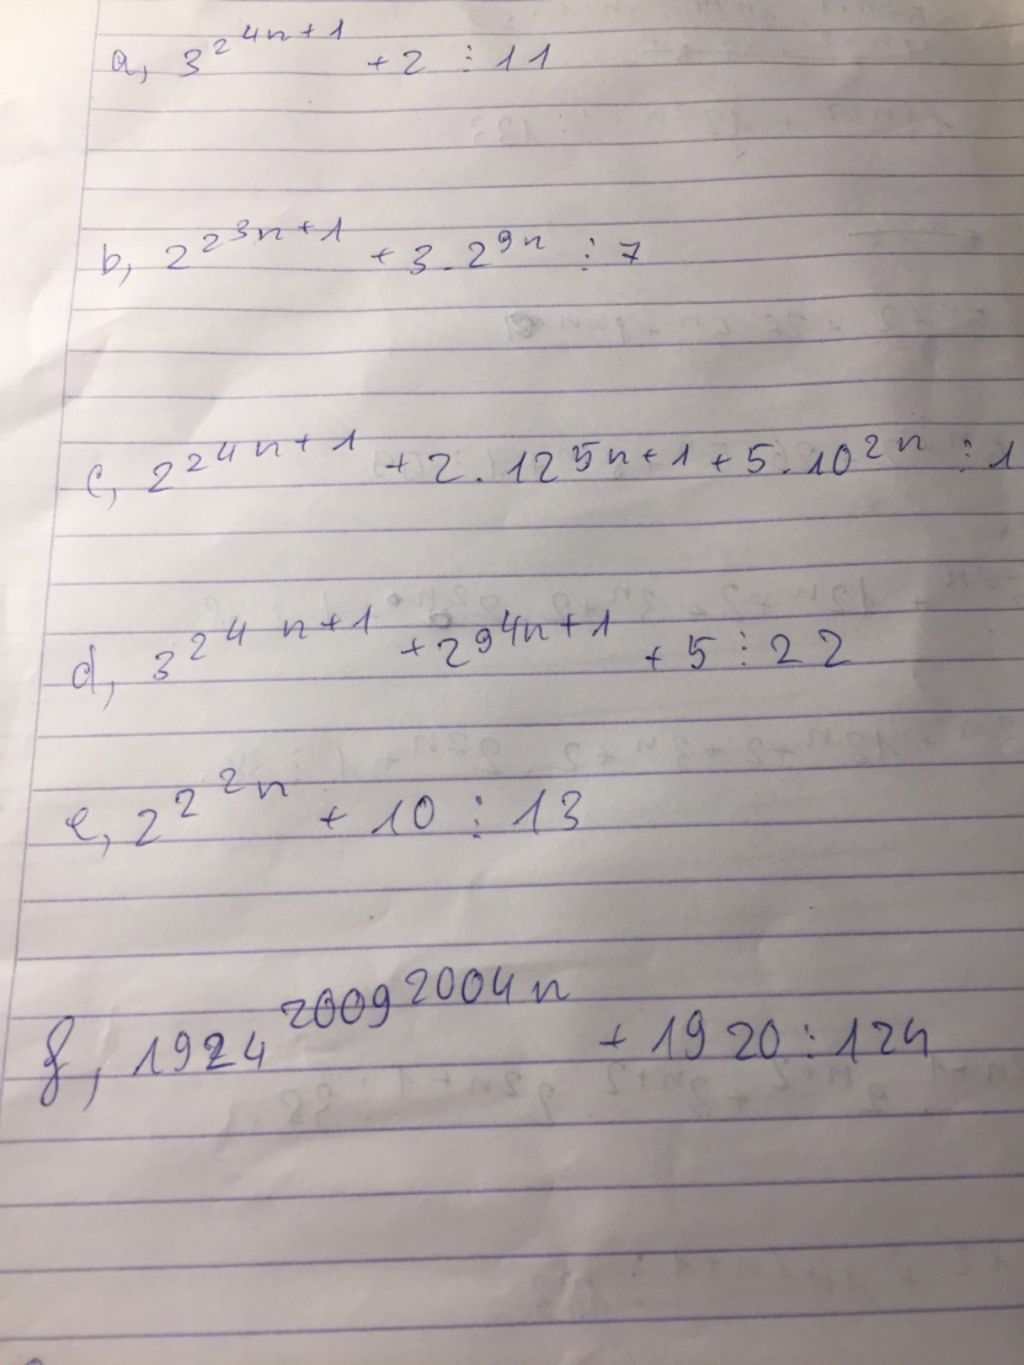 a, 3^2^4n+1 + 2 ⋮ 11
b, 2^2^3n+1 + 3.2^9n ⋮ 7
c, 2^2^4n+1 + 2.12^5n+1 + 5.10^2n ⋮ 1
d, 3^2^4n+1 + 2^9^4n+1 + 5 ⋮ 22
e, 2^2^2n + 10 ⋮ 13
f, 1924^2009^2004n + 1920 ⋮ 124